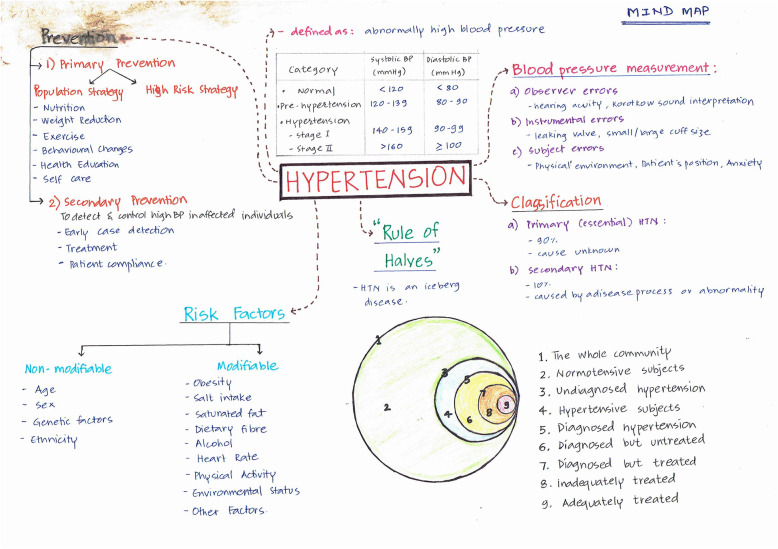 MIND MAP
Prevention
1) Primary Prevention
Population Strategy
- Nutrition
- Weight Reduction
- Exercise
- Behavioural Changes
- Health Education
- Self care
High Risk Strategy
2) Secondary Prevention
To detect & control high BP in affected individuals
- Early case detection
- Treatment
- Patient compliance.
- defined as: abnormally high blood pressure
Category Systolic BP (mmHg) Diastolic BP (mmHg)
• Normal <120 <80
• Pre-hypertension 120-139 80-90
• Hypertension
- Stage I 140-159 90-99
- Stage II >160 ≥100
HYPERTENSION
Blood pressure measurement:
a) Observer errors
- hearing acuity, Korotkow sound interpretation
b) Instrumental errors
- leaking valve, small/large cuff size
c) Subject errors
- Physical environment, Patient's position, Anxiety
Classification
a) Primary (essential) HTN:
- 90%
- cause unknown
b) Secondary HTN:
- 10%
- caused by a disease process or abnormality
"Rule of
Halves"
- HTN is an iceberg
disease.
Risk Factors
Non-modifiable
- Age
- Sex
- Genetic factors
- Ethnicity
Modifiable
- Obesity
- Salt intake
- Saturated fat
- Dietary fibre
- Alcohol
- Heart Rate
- Physical Activity
- Environmental Status
- Other Factors.
1
2
3
4
5
6
7
8
9
1. The whole community
2. Normotensive subjects
3. Undiagnosed hypertension
4. Hypertensive subjects
5. Diagnosed hypertension
6. Diagnosed but untreated
7. Diagnosed but treated
8. Inadequately treated
9. Adequately treated